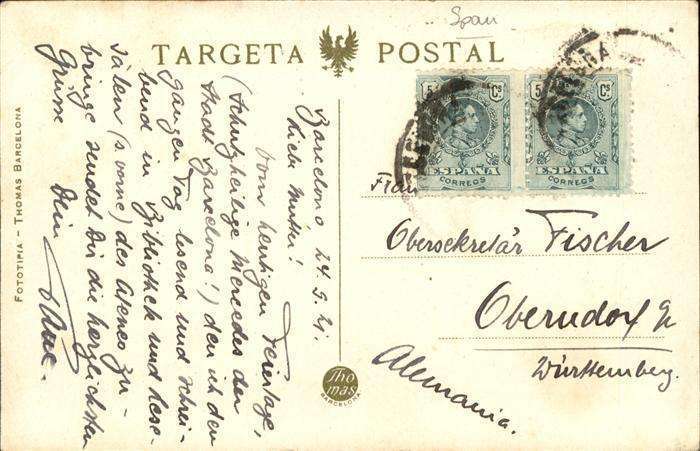 Span
TARGETA POSTAL
5 Cs 5 Cs
ESPAÑA ESPAÑA
CORREOS CORREOS
Frau
Obersekretär Fischer
Oberndorf a/N
Württemberg.
Alemania.
Barcelona 24.9.21.
Liebe Mutter!
Vom heutigen Feiertage,
(Schutzheilige Mercedes der
Stadt Barcelona!) den ich den
ganzen Tag lesend und schrei-
bend in Bibliothek und Lese-
sälen (s. vorne) des Ateneo zu-
bringe sendet Dir die herzlichsten
Grüsse Dein
FOTOTIPIA – THOMAS BARCELONA
Thomas
BARCELONA